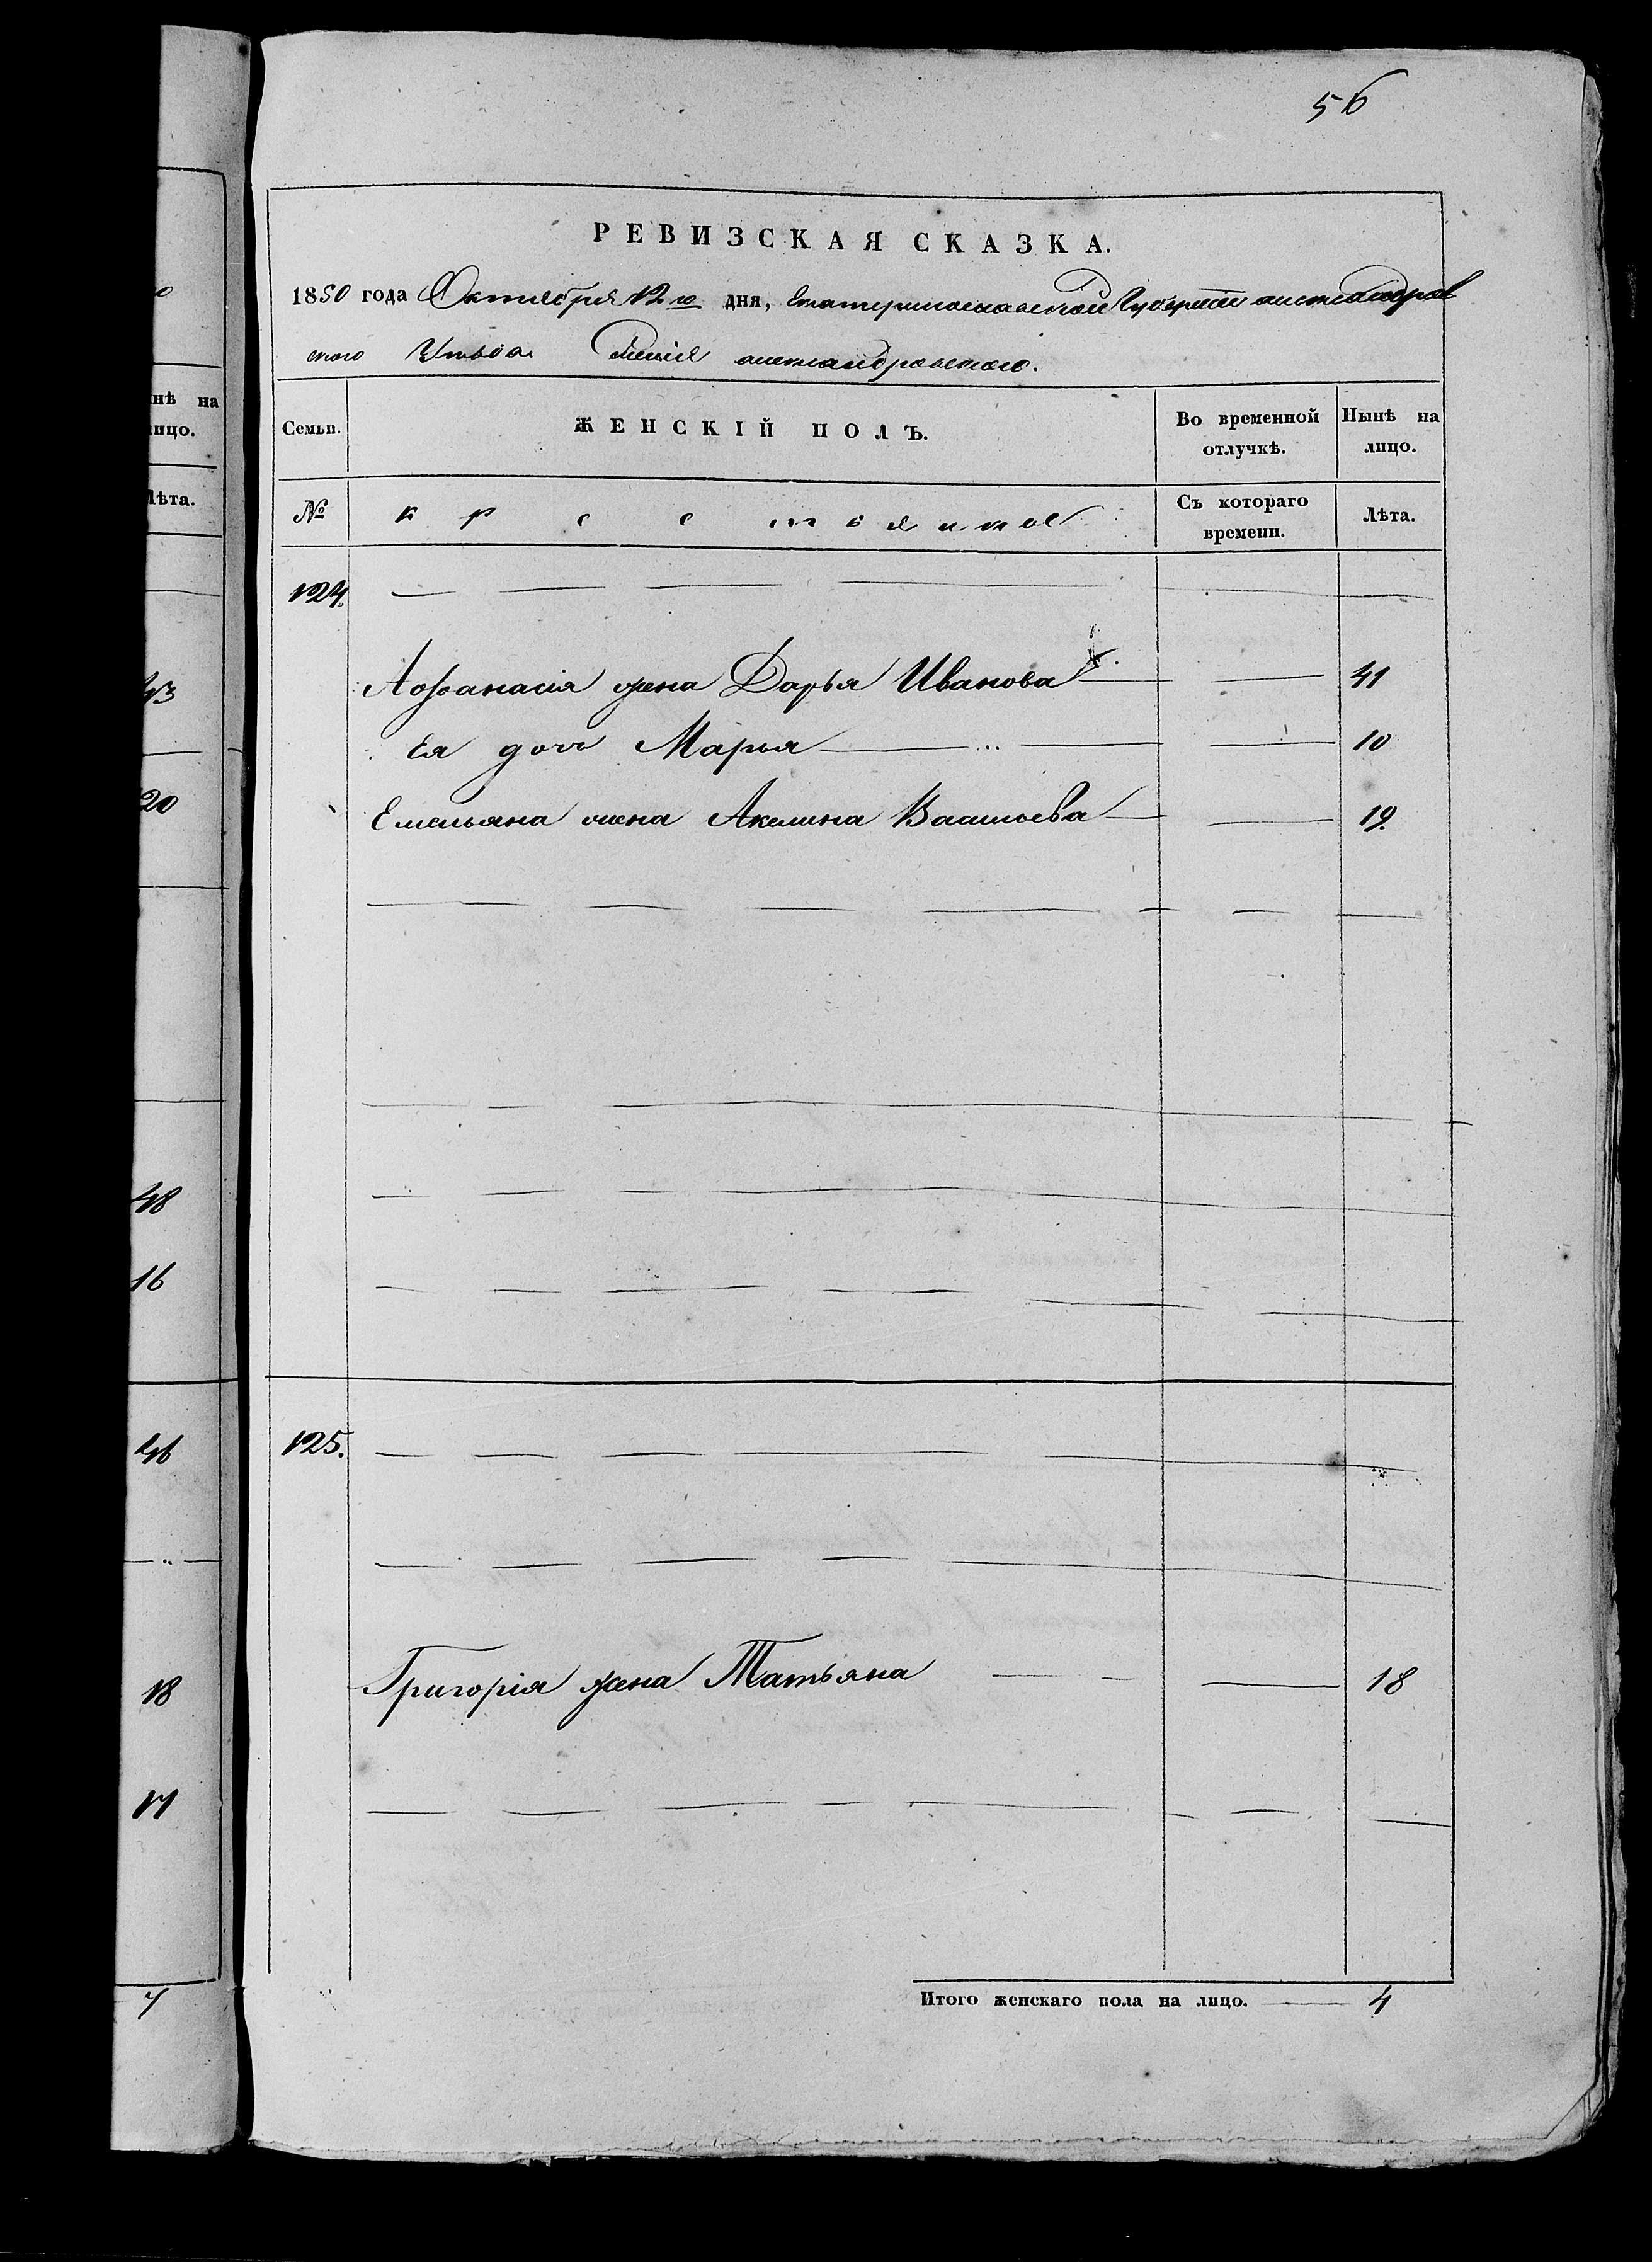 о
нѣ на
лицо.
Лѣта.
43
20
48
16
46
18
17
7
56
РЕВИЗСКАЯ СКАЗКА.
1850 года Октября 12го дня, Екатеринославской Губерніи александров
ского Уѣзда александровского.
Семьи. ЖЕНСКІЙ ПОЛЪ. Во временной отлучкѣ. Нынѣ на лицо.
№ крестьянъ Съ котораго времени. Лѣта.
124.
Афанасія жена Дарья Иванова 41
Ея доч Марья 10
Емельяна жена Акелина Васильева 19.
125.
Григорія жена Татьяна 18
Итого женскаго пола на лицо. 4